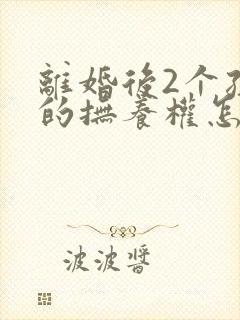 離婚後2个
的撫養權怎
波波醬